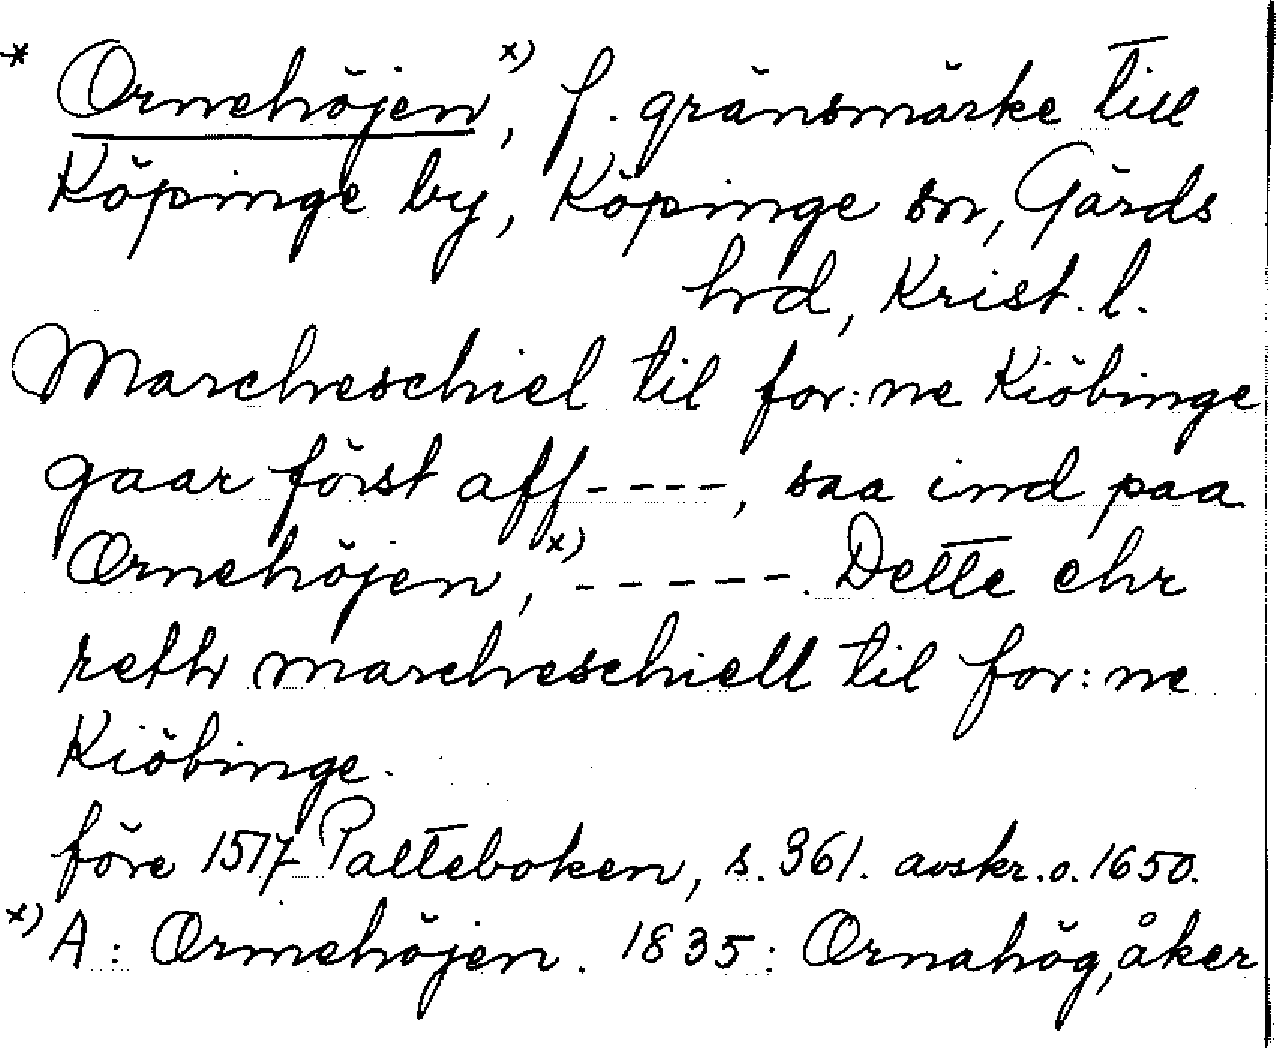 * Ornehöjen x), f. gränsmärke till
Köpinge by, Köpinge sn, Gärds
hrd, Krist. l.
Marcheschiel til for:ne Kiöbinge
gaar först aff ----, saa ind paa
Ornehöjen, x) -----. Dette ehr
reth marcheschiell til for:ne
Kiöbinge.
före 1517 Palteboken, s. 361. avskr. o. 1650.
x) A: Ormehöjen. 1835: Ornahög, åker